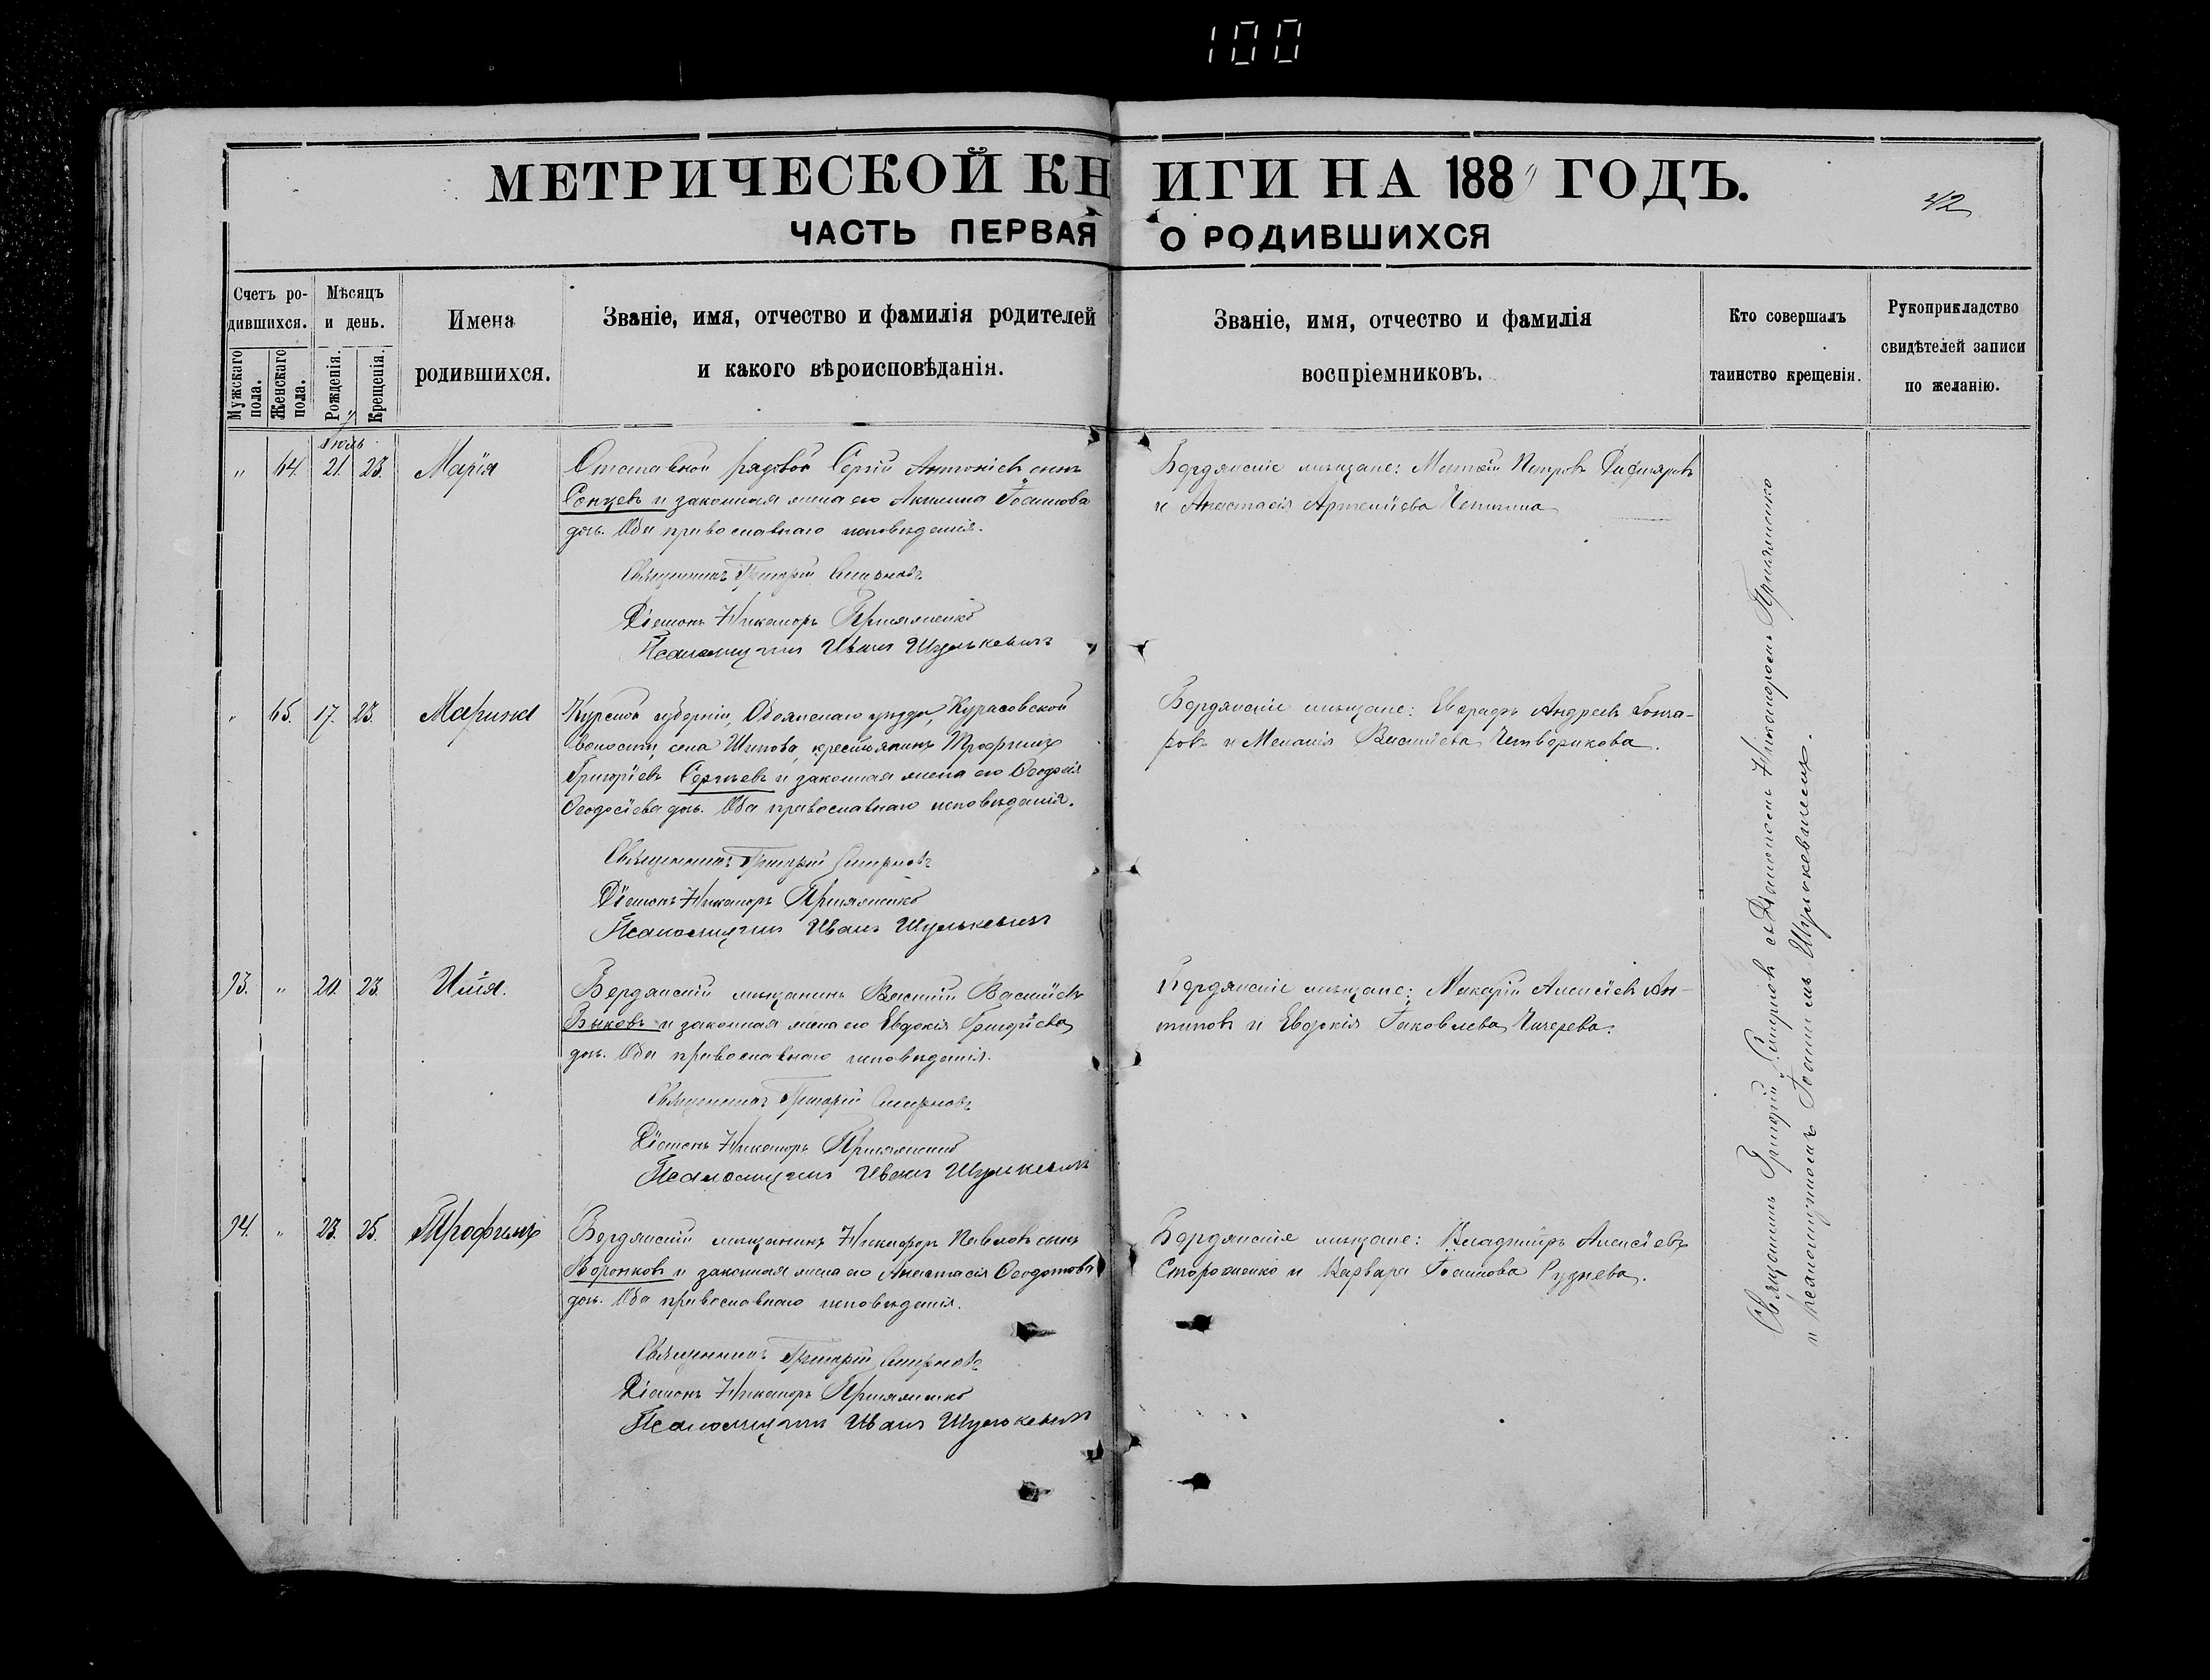 100
МЕТРИЧЕСКОЙ КНИГИ НА 188 ГОДЪ.
42
ЧАСТЬ ПЕРВАЯ О РОДИВШИХСЯ
Счетъ ро-
дившихся.
Мужскаго пола.
Женскаго пола.
Мѣсяцъ
и день.
Рожденія.
Крещенія.
Имена
родившихся.
Званіе, имя, отчество и фамилія родителей
и какого вѣроисповѣданія.
Званіе, имя, отчество и фамилія
воспріемниковъ.
Кто совершалъ
таинство крещенія.
Рукоприкладство
свидѣтелей записи
по желанію.
Іюль
" 64. 21. 23. Марія
Отставной рядовой Сергій Антоніевъ сынъ
Сонцевъ и законная жена его Акилина Іоаннова
дочь. Оба православнаго исповѣданія.
Священникъ Григорій Смирновъ
Діаконъ Никаноръ
Псаломщикъ Иванъ Шулькевичъ
Бердянскіе мѣщане: Матвій Петровъ
и Анастасія Артеміева
" 65. 17. 23. Марина
Курской губерніи, Обоянскаго уѣзда, Курасовской
волости, села Шипова, крестьянинъ Трофимъ
Григоріевъ Сергѣевъ и законная жена его Ѳеодосія
Ѳеодосіева дочь. Оба православнаго исповѣданія.
Священникъ Григорій Смирновъ
Діаконъ Никаноръ
Псаломщикъ Иванъ Шулькевичъ
Бердянскіе мѣщане: Евграфъ Андреевъ Гонча-
ровъ и Меланія Василіева Четверикова.
93. " 20. 23. Илія.
Бердянскій мѣщанинъ Василій Василіевъ
Быковъ и законная жена его Евдокія Григоріева
дочь. Оба православнаго исповѣданія.
Священникъ Григорій Смирновъ
Діаконъ Никаноръ
Псаломщикъ Иванъ Шулькевичъ
Бердянскіе мѣщане: Макарій Алексіевъ Ан-
типовъ и Евдокія Іаковлева Чичерева.
94. " 23. 25. Трофимъ
Бердянскій мѣщанинъ Никифоръ Павловъ сынъ
Воронковъ и законная жена его Анастасія Ѳеодотова
дочь. Оба православнаго исповѣданія.
Священникъ Григорій Смирновъ
Діаконъ Никаноръ
Псаломщикъ Иванъ Шулькевичъ
Бердянскіе мѣщане: Владиміръ Алексіевъ
Стороженко и Варвара Іоаннова Руднева.
Священникъ Григорій Смирновъ съ Діакономъ Никаноромъ
и псаломщикомъ Іоанномъ Шулькевичемъ.